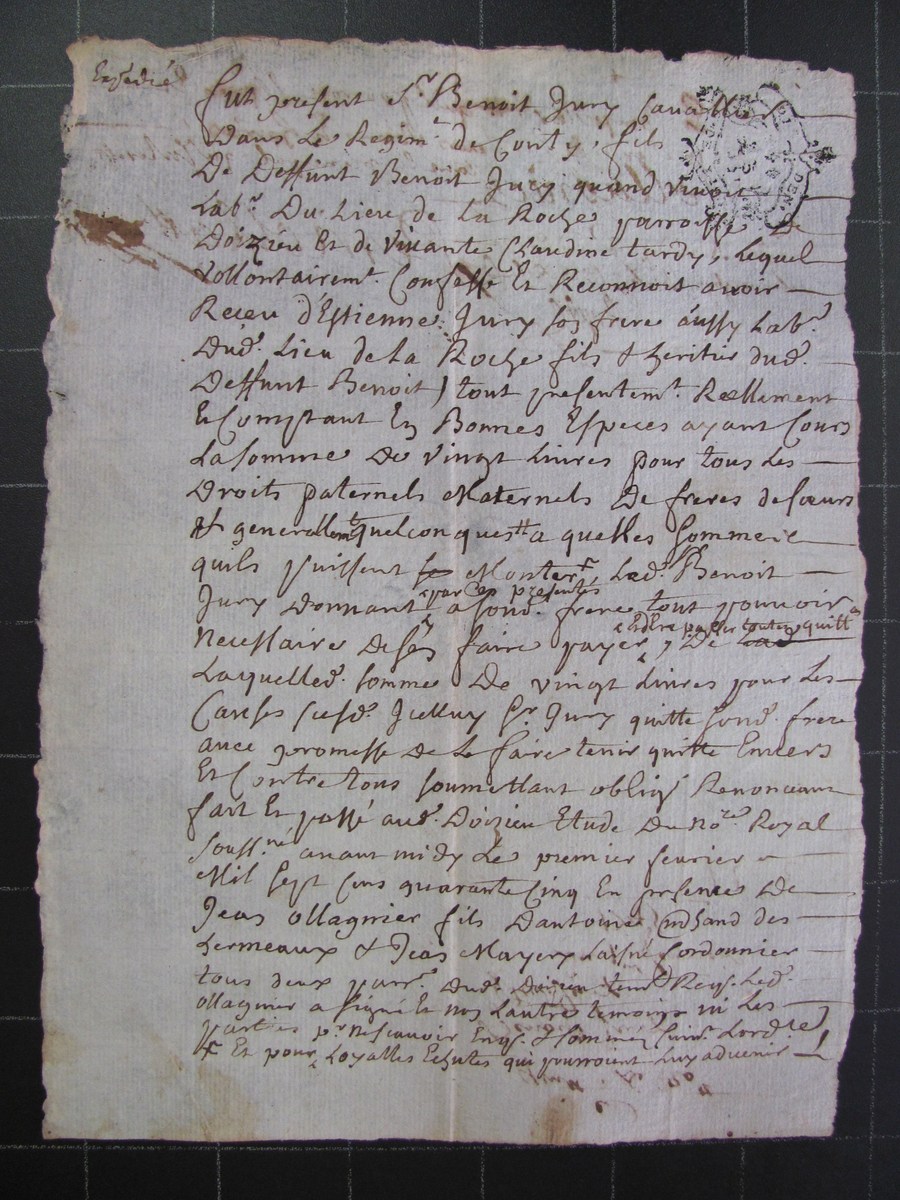 Expedié
fut present Sr. Benoit Jury Cavallier
Dans Le Regimt. de Conty, fils
De Deffunt Benoit Jury quand vivoit
Labr. Du Lieu de La Roche parroisse De
Doizieu Et de vivante Claudine tardy, Lequel
vollontairemt. Confesse Et Reconnoit avoir
Reçeu d'Estienne Jury son frere áussy Labr.
Dud. Lieu de La Roche fils & heritier dud.
Deffunt Benoit) tout presentemt. Reellement
& Comptant En Bonnes Especes ayant Cours
La somme De vingt Livres pour tous Les
Droits paternels Maternels De freres de sœurs
& generallemt quelconques a quelles Somme
quils puissent se Monter, Led. Benoit
par Ces presentes
Jury Donnant a sond. frere tout pouvoir
passer toutes quitt.
Necessaire De sen faire payer, De
Laquelled. somme De vingt Livres pour Les
Causes susd. Jcelluy Sr. Jury quitte sond. frere
avec promesse De Le faire tenir quitte Envers
Et Contre tous soumettant oblig. Renonceant
fait Et passé aud. Doizieu Etude Du Nore. Royal
souss.né avant midy Le premier fevrier
Mil sept Cens quarante Cinq En presence De
Jean Ollagnier fils Dantoine mchand des
Lermeaux & Jean Mayery Laisné Cordonnier
tous deux parr. Dud. Doizieu Led.
ollagnier a signé Et non Lautre temoin ni Les
parties pr. ne scavoir Enqs. & sommés suivt. Lord.ce
& Et pour Loyalles Echutes qui pourroient Luy advenir